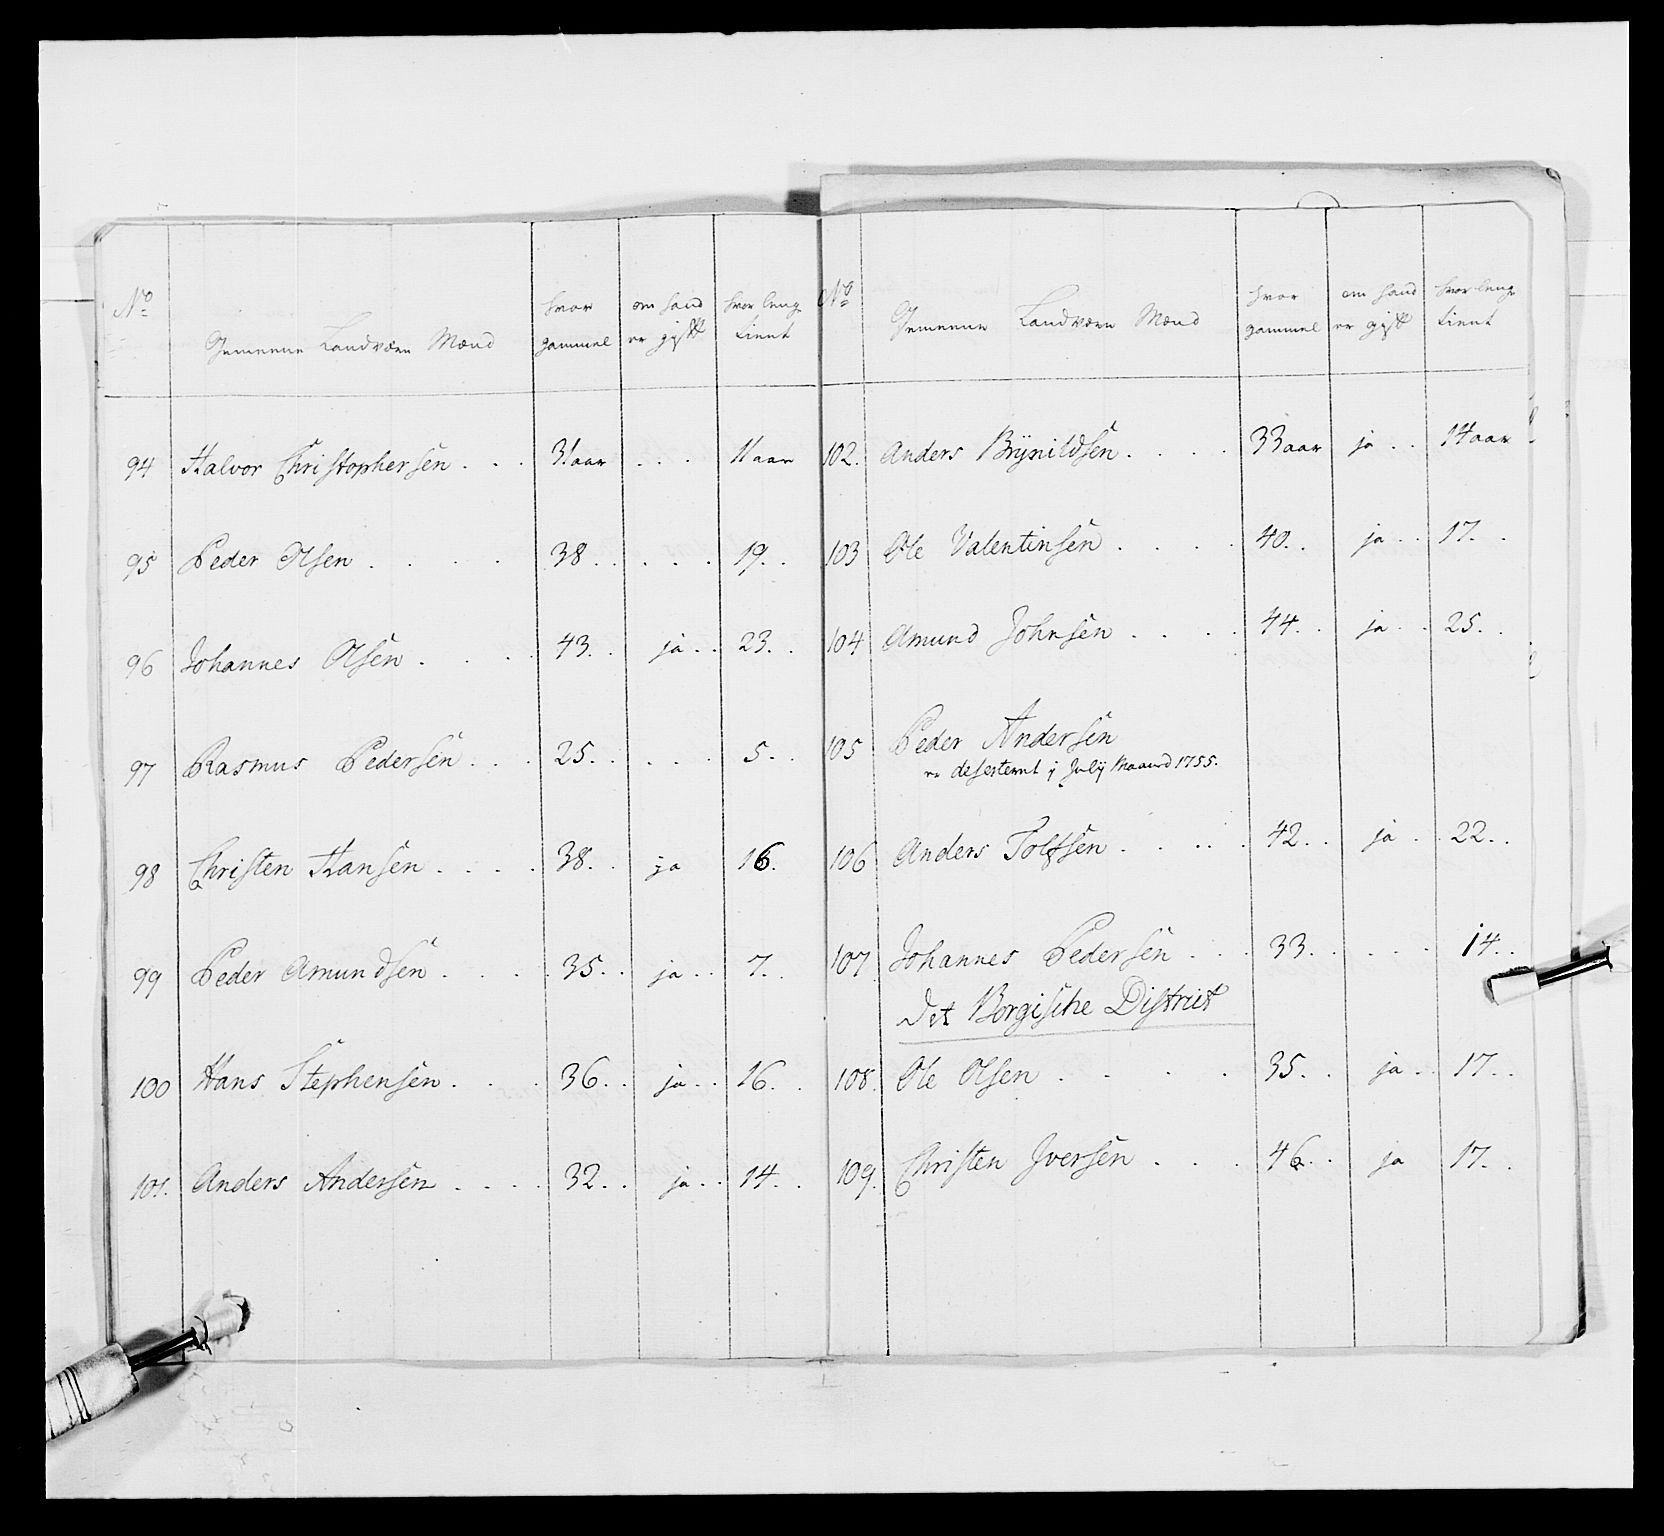 No
Gemeene Landværn Mænd
hvor gammel
om hand er gift
hvor leng tient
94 Halvor Christophersen . . . 31 aar . . . 11 aar
95 Peder Olsen . . . . 38 . . . . . 19 . .
96 Johannes Olsen . . . . 43 . . ja . . 23 . .
97 Rasmus Pedersen . . . 25 . . . . . 5 . .
98 Christen Hansen . . . . 38 . . ja 16 .
99 Peder Amundsen . . . . 35 . . ja . . 7 . .
100 Hans Stephensen . . . 36 . . ja . . 16 . .
101. Anders Andersen . . . . 32 . . ja . . 14 . .
No
Gemeene Landværn Mænd
hvor gammel
om hand er gift
hvor leng tient
102. Anders Brÿnildsen . . . . 33 aar ja . . 14 aar
103 Ole Valentinsen . . . . 40 . . ja . . 17 . .
104 Amund Johnsen . . . . 44 . . ja . . 25 . .
105 Peder Andersen
er deserteret j Julÿ Maaned 1755.
106 Anders Tolfsen . . . . . 42 . . ja . . 22 . .
107 Johannes Pedersen . . . 33 . . . . 14 . .
Det Borgische District
108. Ole Olsen . . . . 35 . . ja . . 17 . .
109. Christen Jversen . . . 46 . . ja 17 . .